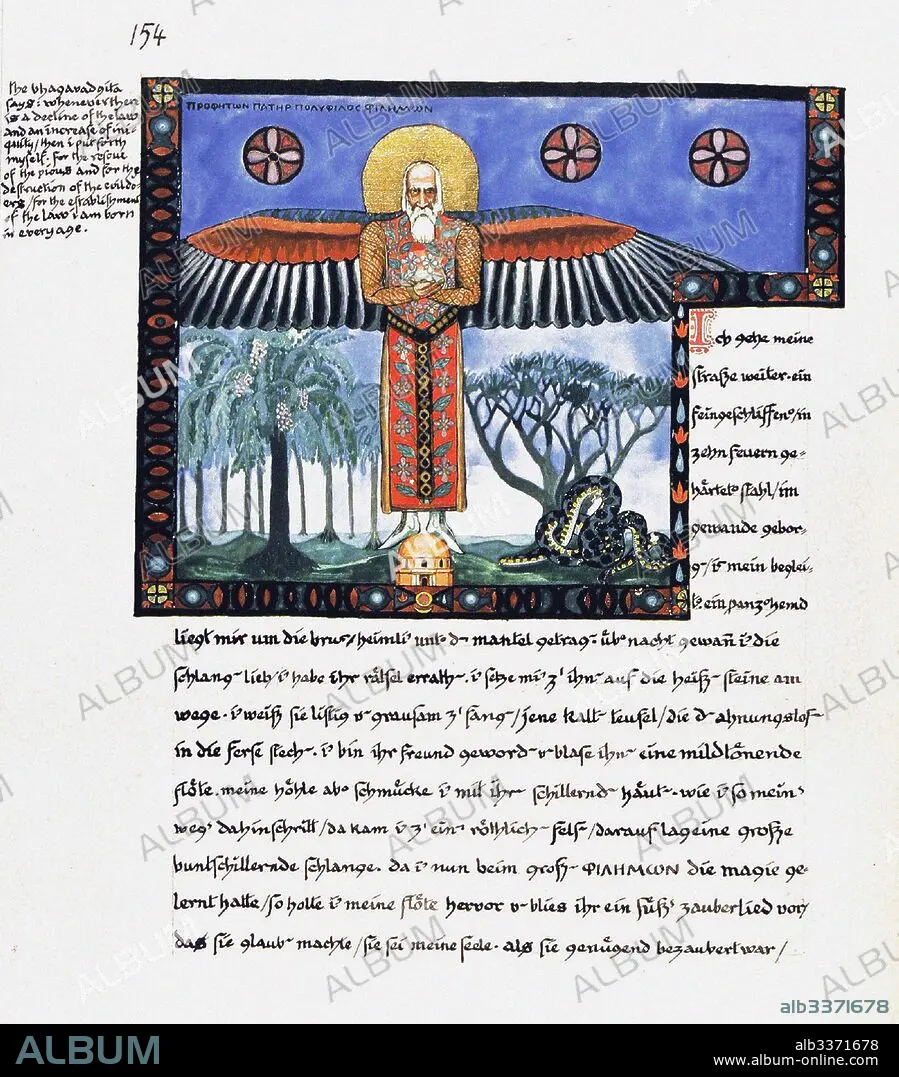 154
the bhagavadgita
says: whenever there
is a decline of the law
and an increase of ini-
quity/then i put forth
myself. for the rescue
of the pious and for the
destruction of the evildo-
ers/for the establishment
of the law i am born
in every age.
ΠΡΟΦΗΤΩΝ ΠΑΤΗΡ ΠΟΛΥΦΙΛΟΣ ΦΙΛΗΜΩΝ
Ich gehe meine
straße weiter. ein
feingeschliffen in
zehn feuern ge-
härtet stahl/im
gewande gebor-
mein beglei-
ein panz hemd
liegt mir um die brus/heimli unt d mantel getrag. üb nacht gewan i die
schlang lieb/i habe ihr rätsel errath. i setze mi z' ihn auf die heiß steine am
wege. i weiß sie listig u grausam z' fang/jene kalt teufel/die d ahnungslos
in die ferse stech. i bin ihr freund geword u blase ihn eine mildtönende
flöte. meine höhle ab schmücke i mit ihr schillernd häut. wie i so mein
weg dahinschritt/da kam i z' ein röthlich fels/darauf lag eine große
buntschillernde schlange. da i nun beim groß ΦΙΛΗΜΩΝ die magie ge-
lernt hatte/so holte i meine flöte hervor u blies ihr ein süß zauberlied vor/
das sie glaub machte/sie sei meine seele. als sie genügend bezaubert war/
ALBUM
alb3371678
ALBUM
alb3371678
www.album-online.com